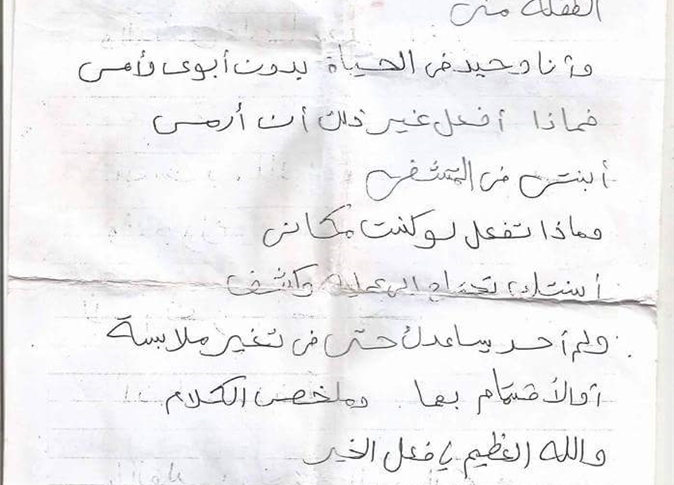 الطفلة منى
وأنا وحيد فى الحياة بدون أبوى وأمى
فماذا أفعل غير ذلك أن أرمى
أبنتى فى المتشفى
وماذا تفعل لو كنت مكانى
أبنتك تحتاج الى عمليه وكشف
ولم أحد يساعدك حتى فى تغير ملابسة
أو الأهتمام بها وملخص الكلام
والله العظيم يا فعل الخير